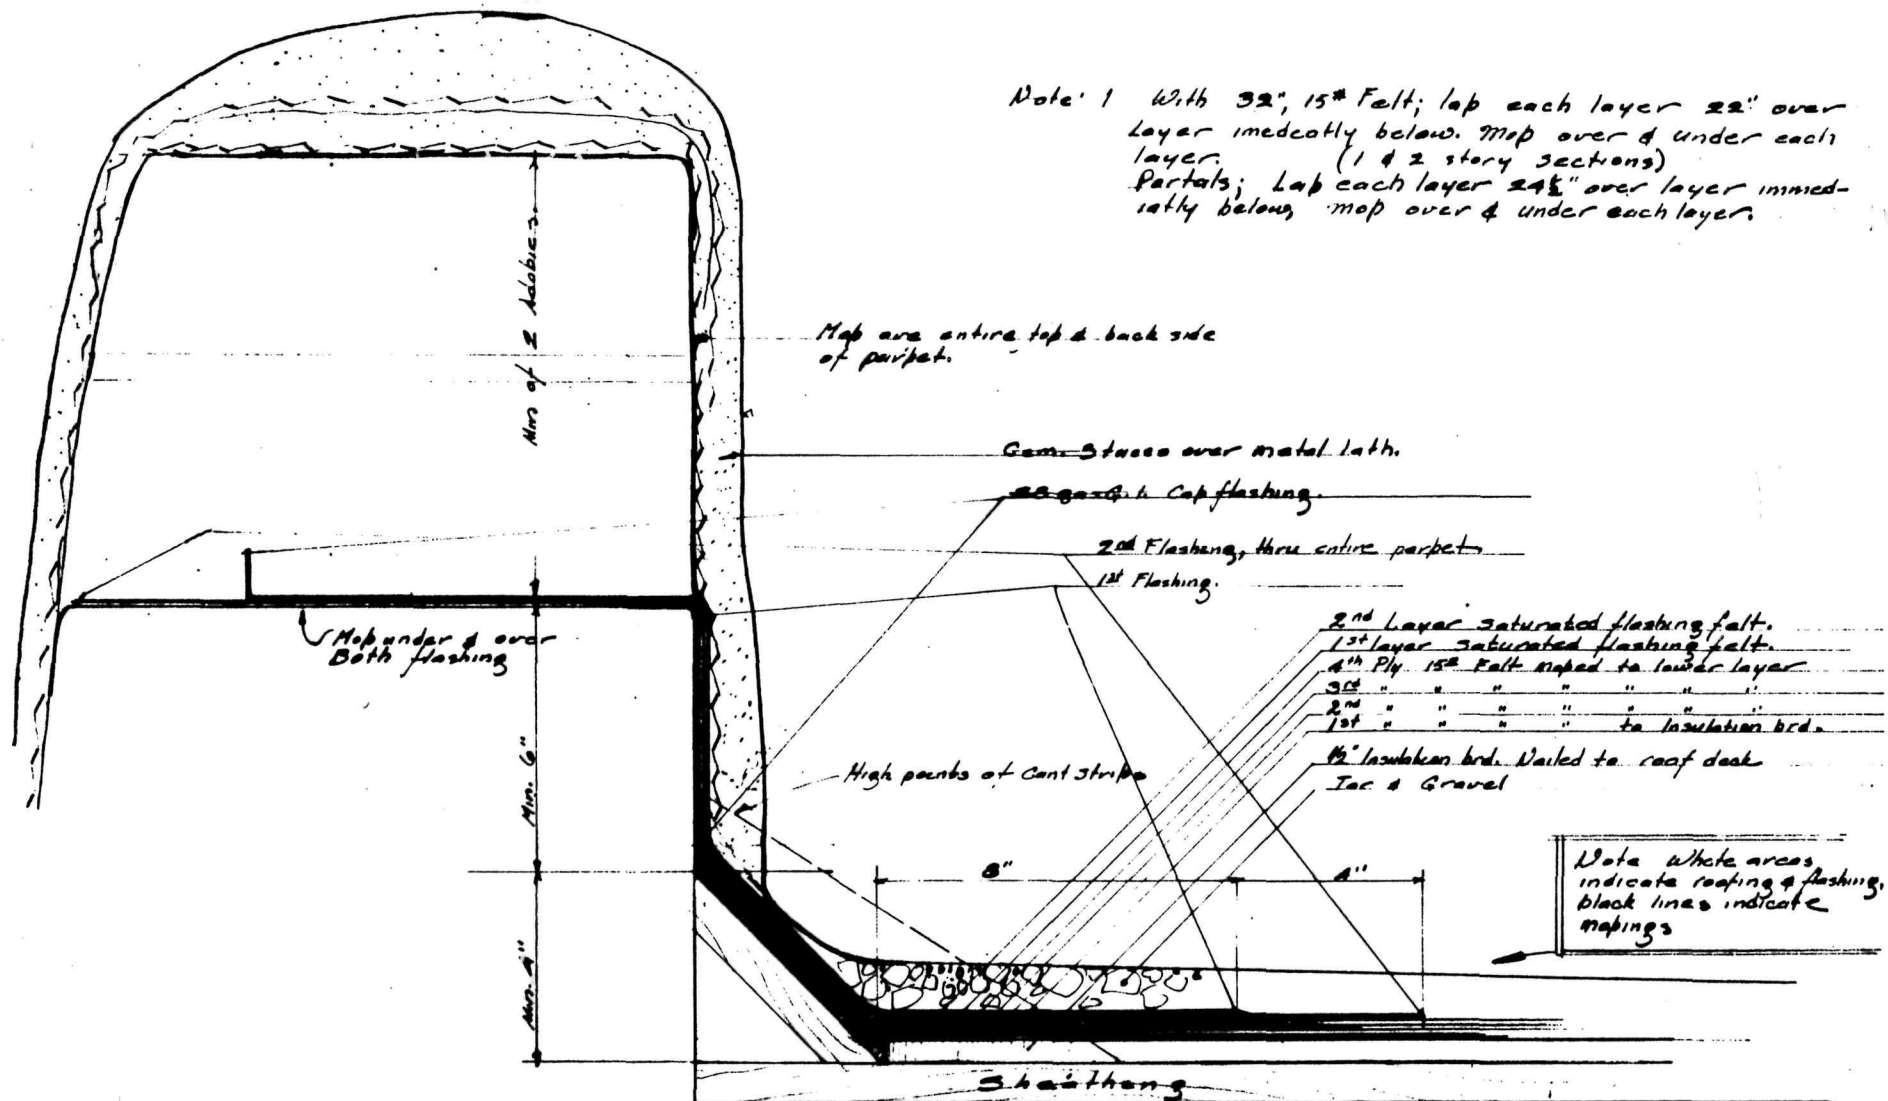 Note: 1 With 32", 15# Felt; lap each layer 22" over
Layer imedeatly below. Mop over & under each
layer. (1 & 2 story sections)
Portals; Lap each layer 24½" over layer immed-
iatly below, mop over & under each layer.
Min of 2 Adobies.
Mop are entire top & back side
of parpet.
Cem. Stucco over metal lath.
26 ga. G.I. Cap flashing.
2nd Flashing, thru entire parpet
1st Flashing.
Mop under & over
Both flashing
2nd Layer saturated flashing felt.
1st layer saturated flashing felt.
4th Ply 15# Felt moped to lower layer
3rd " " " " " " "
2nd " " " " " " "
1st " " " " to Insulation brd.
½" Insulation brd. Nailed to roof deck
Tar & Gravel
Min. 6"
High points of Cant strips
8"
4"
Note White areas
indicate roofing & flashing,
black lines indicate
mopings
Min. 4"
Sheathing